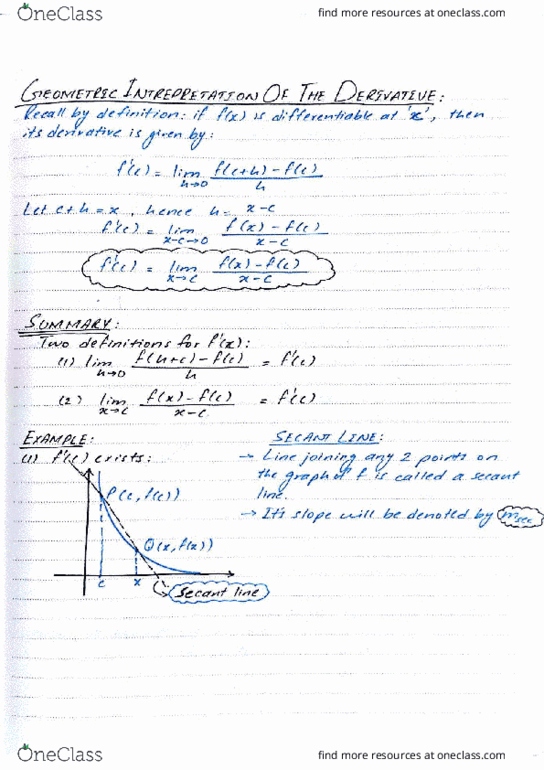 OneClass
find more resources at oneclass.com
GEOMETRIC INTREPRETATION OF THE DERIVATIVE:
Recall by definition: if f(x) is differentiable at 'x', then
its derivative is given by:
f'(c) = lim h→0 f(c+h) - f(c) / h
Let c+h = x, hence h = x-c
f'(c) = lim x-c→0 f(x) - f(c) / x-c
f'(c) = lim x→c f(x) - f(c) / x-c
SUMMARY:
Two definitions for f'(x):
(1) lim h→0 f(h+c) - f(c) / h = f'(c)
(2) lim x→c f(x) - f(c) / x-c = f'(c)
EXAMPLE:
(1) f'(c) exists:
P(c, f(c))
Q(x, f(x))
c
x
Secant line
SECANT LINE:
→ Line joining any 2 points on
the graph of f is called a secant
line.
→ It's slope will be denoted by msec
OneClass
find more resources at oneclass.com